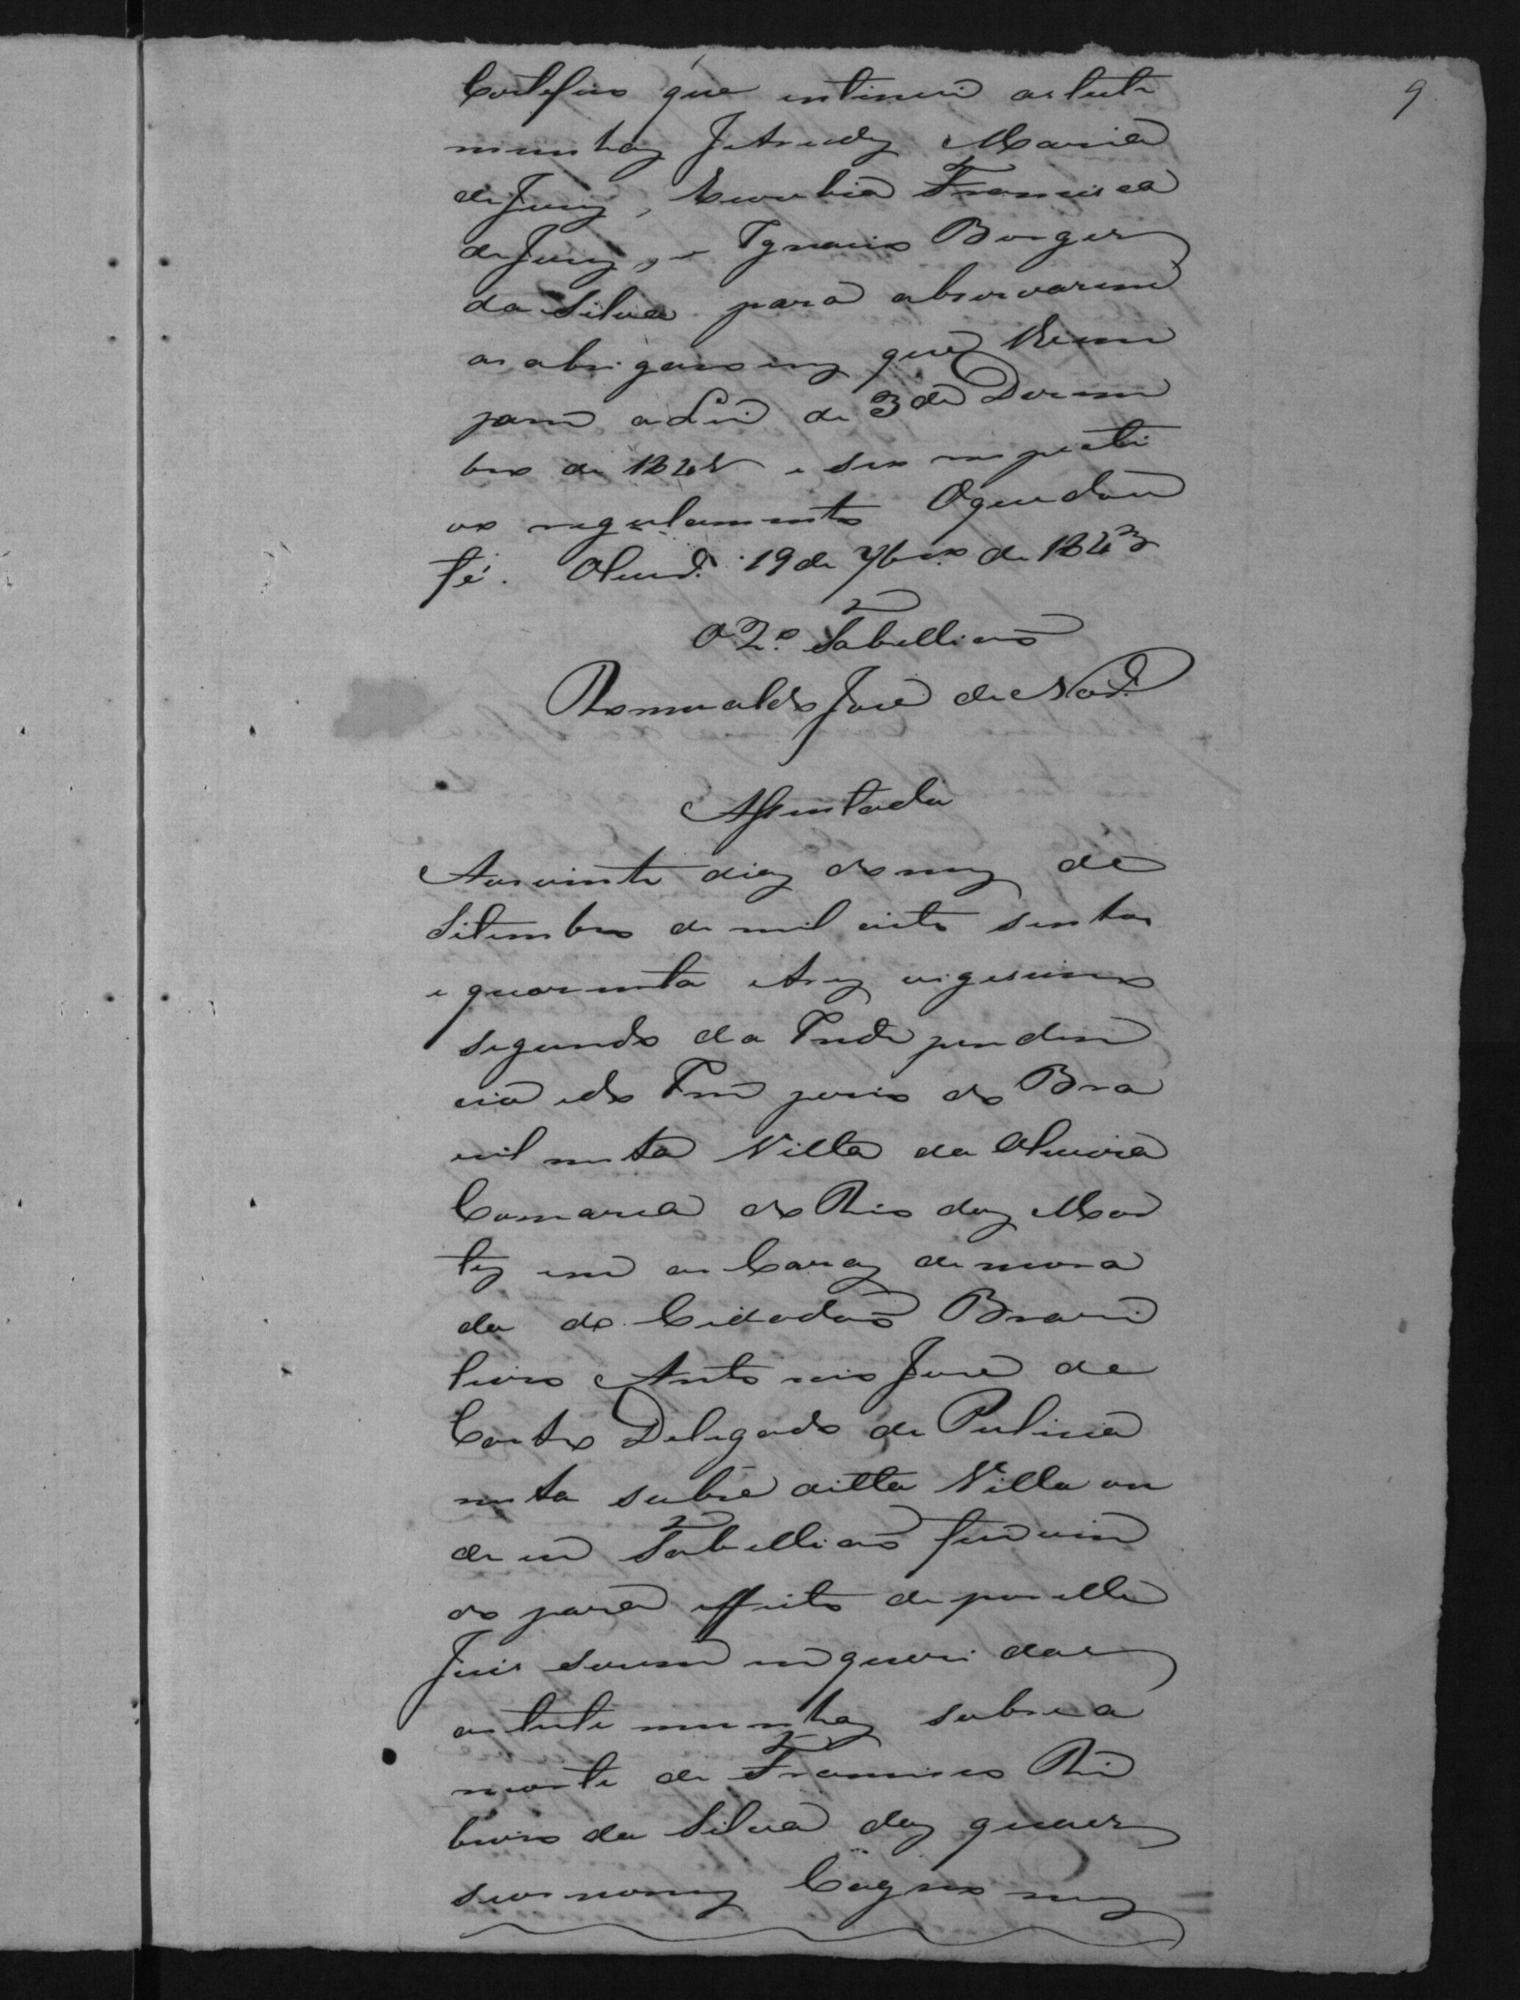 9
Certefico que intimei as teste
munhas Jetrudes Maria
de Jesus, Euzebia Francisca
de Jesus, e Ignacio Borges
da Silva para observarem
as obrigaçoins que Recom
 a Lei de 3 de Dezem
bro de 1841 e seo respecti
vo regulamento O que dou
fé. Olivrª 19 de 7brº de 1843
O 2º Tabelliaõ
Romualdo José de 
Assentada
Aos vinte dias do mes de
Setembro de mil oito sentos
e quarenta e tres vigesimo
segundo da Independen
cia e do Imperio do Bra
zil nesta Villa da Oliveira
Comarca do Rio das Mor
tes em as Cazas de mora
da do Cidadaõ Brazi
leiro Antonio José de
Castro Delegado de Pulicia
nesta sobre ditta Villa on
de eu Tabelliaõ fui vin
do para effeito de por elle
Juis serem inqueridas
as teste munhas sobre a
morte de Francisco Ri
beiro da Silva das quaes
seos nomes Cognomes